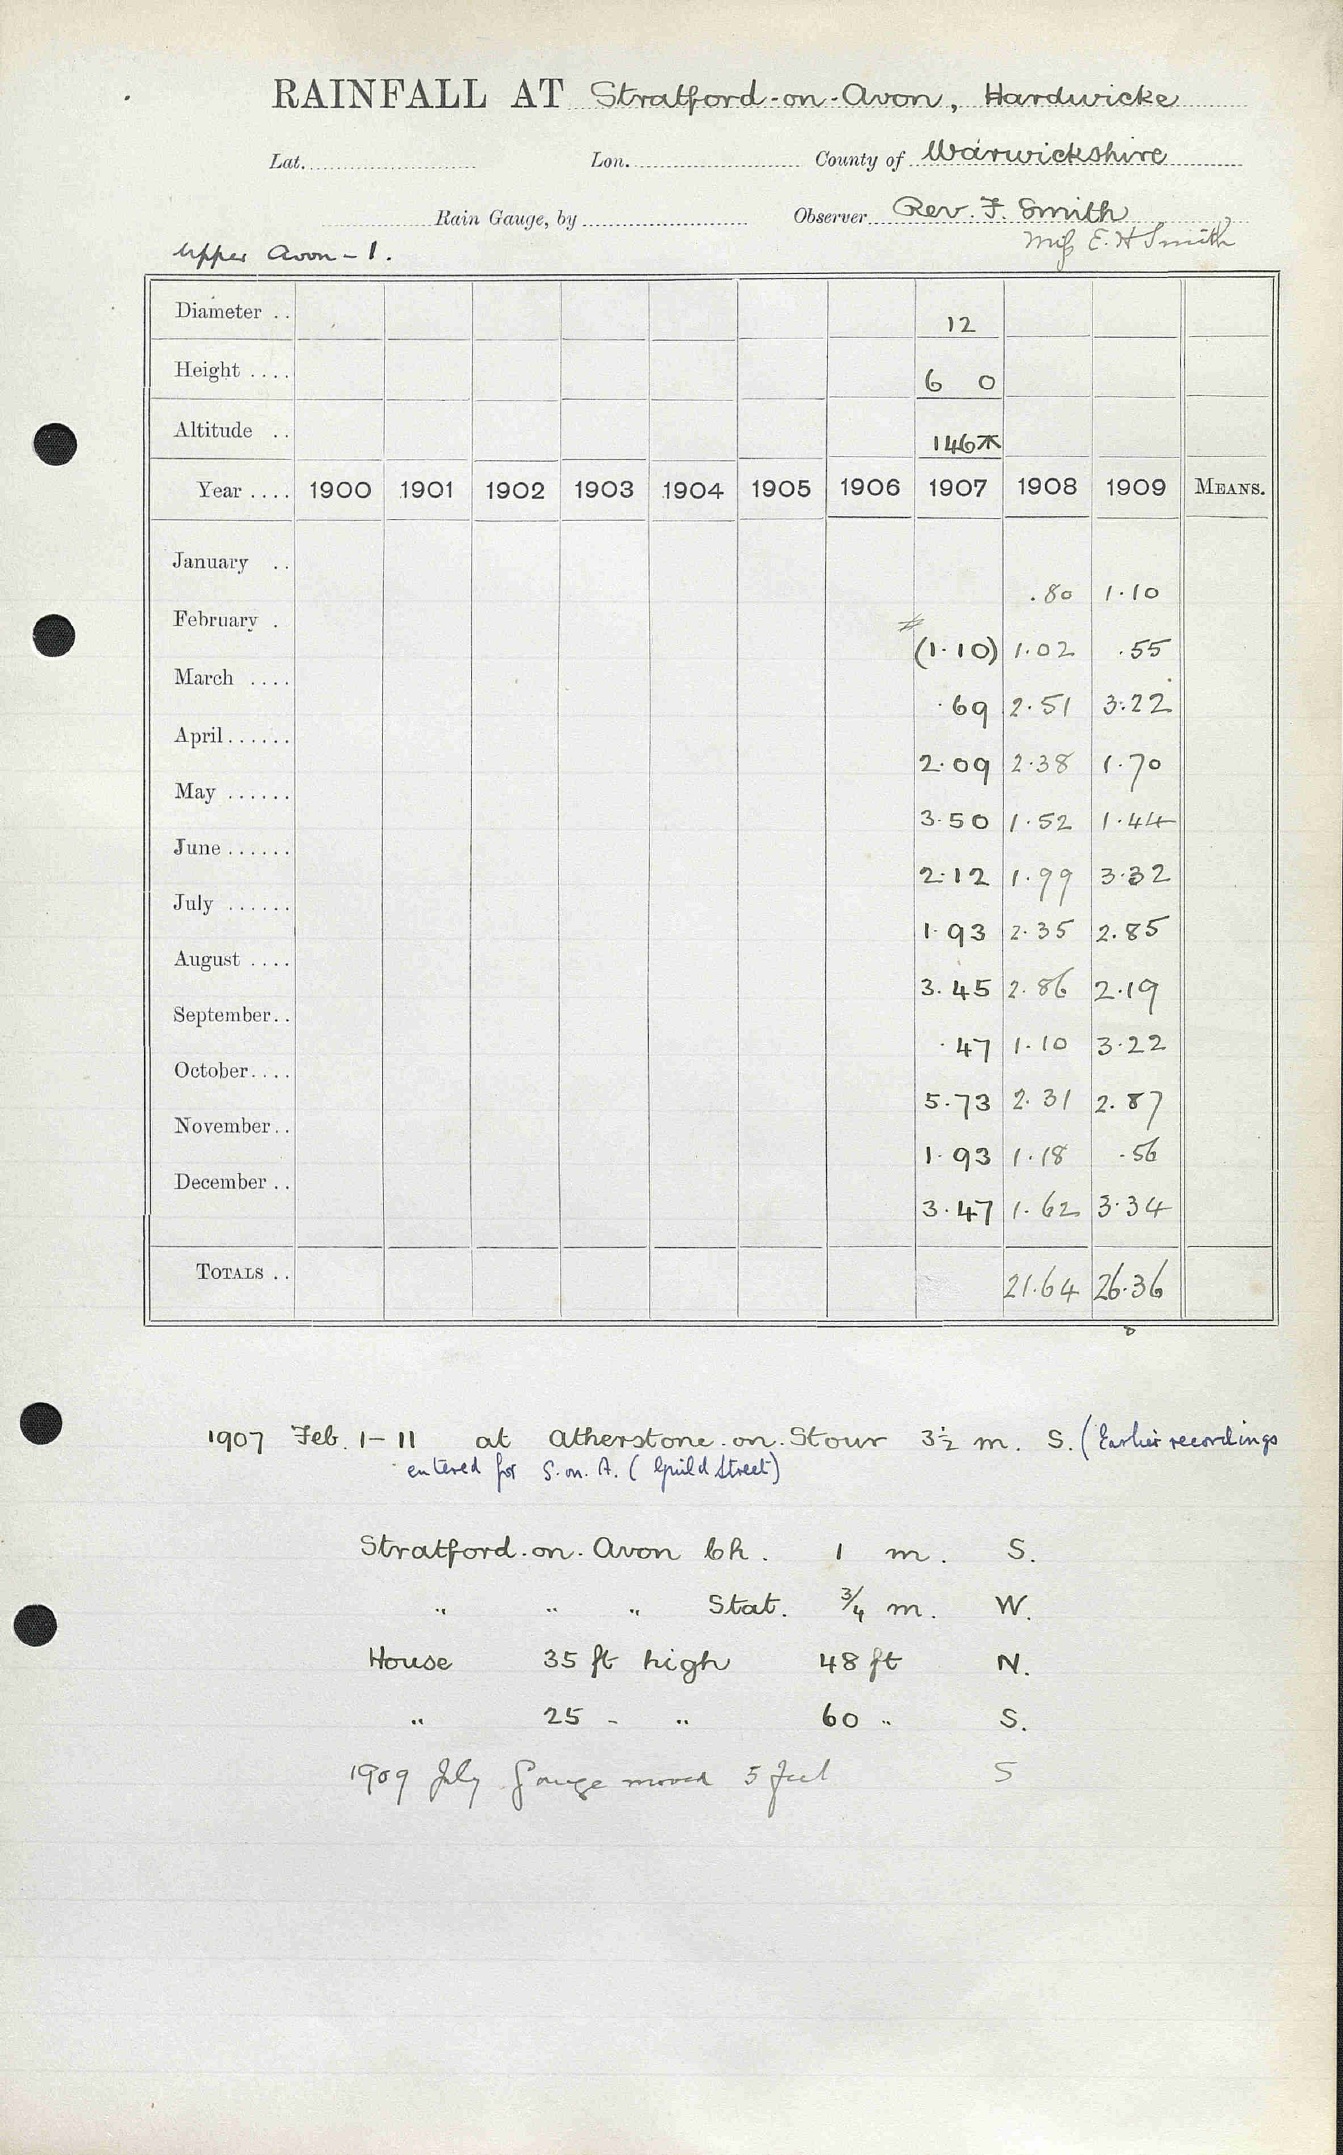 RAINFALL AT Stratford-on-Avon, Hardwicke
Lat. Lon. County of Warwickshire
Rain Gauge, by Observer Rev. F. Smith
Miss E. H Smith
Upper Avon - 1.
Diameter .. 12
Height .... 6 0
Altitude .. 146
Year .... 1900 1901 1902 1903 1904 1905 1906 1907 1908 1909 MEANS.
January .. .80 1.10
February . (1.10) 1.02 .55
March .... .69 2.51 3.22
April...... 2.09 2.38 1.70
May ...... 3.50 1.52 1.44
June ...... 2.12 1.99 3.32
July ...... 1.93 2.35 2.85
August .... 3.45 2.86 2.19
September.. .47 1.10 3.22
October.... 5.73 2.31 2.87
November.. 1.93 1.18 .56
December .. 3.47 1.62 3.34
TOTALS .. 21.64 26.36
8
1907 Feb. 1-11 at Atherstone.on.Stour 3½ m. S. (Earlier recordings
entered for S.on.A. (Guild Street)
Stratford.on.Avon Ch. 1 m. S.
" " " Stat. ¾ m. W.
House 35 ft high 48 ft N.
" 25 - " 60 " S.
1909 July Gauge moved 5 feet S